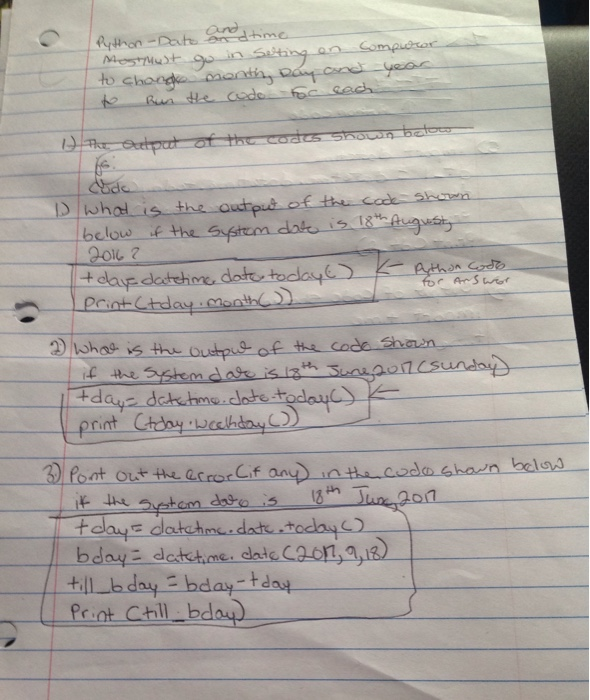 Python-Date and time
Must go in setting on computer
to change month, Day and year
to Run the code for each
1) the output of the codes shown below
is:
code
1) what is the output of the code shown
below if the system date is 18th August,
2016?
tday=datetime.date.today()
print(tday.month())
← Python Code
for Answer
2) What is the output of the code shown
if the system date is 18th June, 2017 (sunday)
tday= datetime.date.today() ←
print (tday.weekday())
3) Point out the error (if any) in the code shown below
if the system date is 18th June, 2017
tday= datetime.date.today()
bday= datetime.date(2017,9,18)
till_bday = bday-tday
Print (till_bday)